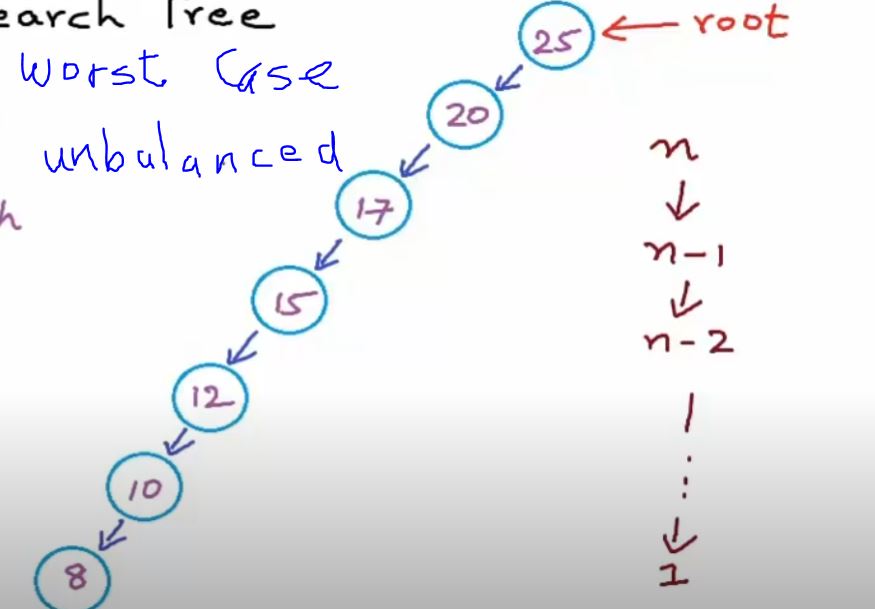 earch Tree
Worst Case
unbalanced
h
25 ← root
20
17
15
12
10
8
n
↓
n-1
↓
n-2
|
⋮
↓
1